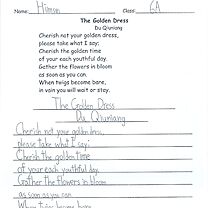 Name: Hilman Class: 6A
The Golden Dress
Du Qiuniang
Cherish not your golden dress,
please take what I say;
Cherish the golden time
of your each youthful day.
Gather the flowers in bloom
as soon as you can.
When twigs become bare,
in vain you will wait or stay.
The Golden Dress
Du Qiuniang
Cherish not your golden dress,
please take what I say;
Cherish the golden time
of your each youthful day.
Gather the flowers in bloom
as soon as you can.
When twigs become bare,